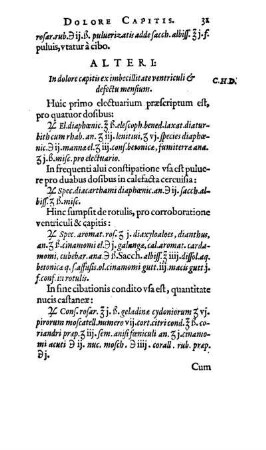 DOLORE CAPITIS. 31
rosar.rub.℈ ij.ß. puluerizatis adde sacch.albiss. ℥ j.f.
puluis, vtatur à cibo.
ALTERI:
In dolore capitis ex imbecillitate ventriculi &
defectu mensium. C.H.D.
Huic primo electuarium præscriptum est,
pro quatuor dosibus:
℞ El.diaphœnic. ℥ ß.elescoph.bened.laxat.diatur-
bith cum rhab. an. ʒ iij.lenitiui, ʒ vj.species diaphœ-
nic.℈ ij.manna el. ʒ iij.cons.betonica, fumiterræ ana.
ʒ ß.misc. pro electuario.
In frequenti alui constipatione vsa est pulue-
re pro duabus dosibus in calefacta ceruisia:
℞ Spec.diacarthami diaphœnic.an.℈ ij. sacch.al-
biss. ʒ ß.misc.
Hinc sumpsit de rotulis, pro corroboratione
ventriculi & capitis:
℞ Spec. aromat. ros. ʒ j. diaxyloaloes, dianthus,
an. ʒ ß.cinamomi el.℈ j. galanga, cal.aromat. carda-
momi, cubebar. ana ℈ ß. Sacch. albiss. ℥ iiij.dissol.aq.
betonica q.s.affusis ol.cinamomi gutt.iij.macis gutt j.
f.conf.in rotulis.
In fine cibationis condito vsa est, quantitate
nucis castaneæ:
℞ Cons.rosar. ℥ j. ß. geladinæ cydoniorum ʒ vj.
pirorum moscatell.numero vij.cort.citri cond. ℥ ß. co-
riandri præp. ʒ iij. sem. anisi fœniculi an. ʒ j.cinamo-
mi acuti ℈ ij. nuc. mosch. ℈ iiij. corall. rub. præp.
℈ j.
Cum